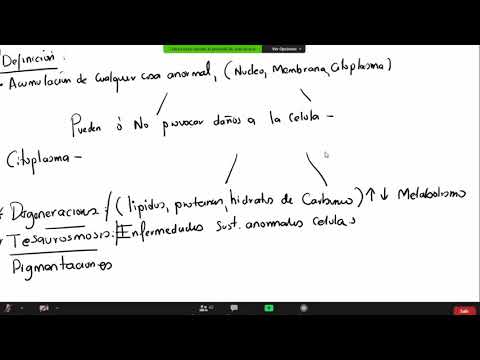 Definición:
- Acumulación de cualquier cosa anormal, (Nucleo, Membrana, Citoplasma)
Pueden ó No provocar daños a la celula -
Citoplasma -
* Degeneraciones / (lipidos, proteinas, hidratos de Carbono) ↑ ↓ Metabolismo
Tesaurosmosis: Enfermedades Sust. anormales celulas
Pigmentaciones
Ver Opciones
Salir